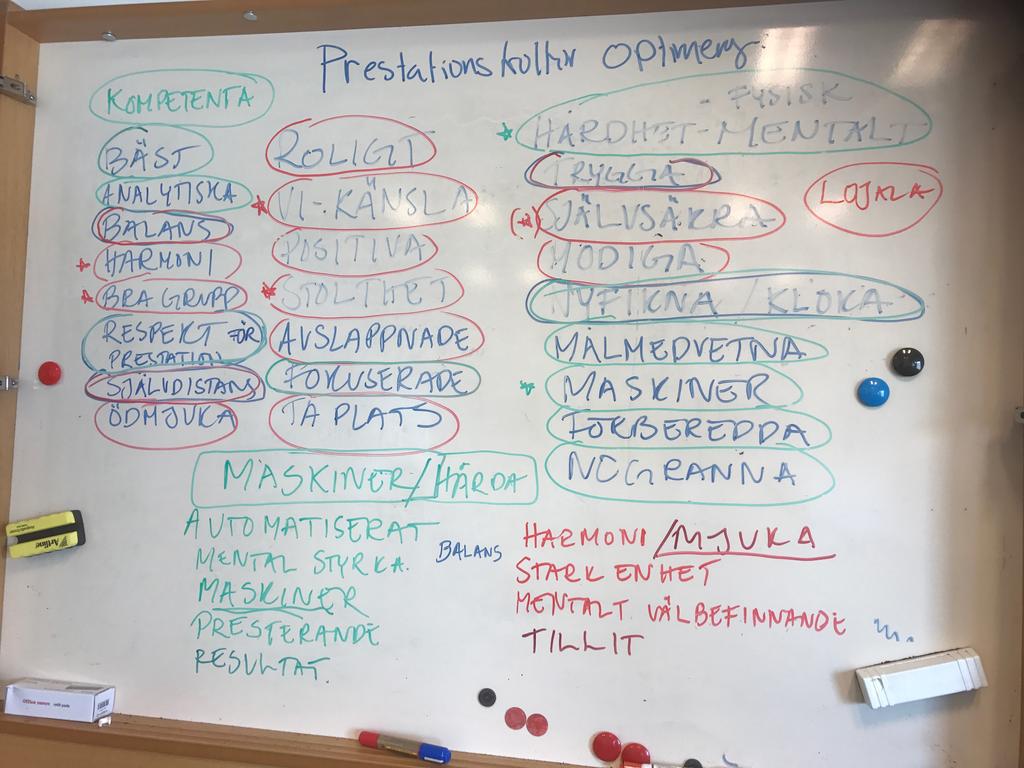 Prestationskultur Optimering
KOMPETENTA
BÄST
ANALYTISKA
BALANS
HARMONI
BRA GRUPP
RESPEKT FÖR
PRESTATION
SJÄLVDISTANS
ÖDMJUKA
ROLIGT
VI-KÄNSLA
POSITIVA
STOLTHET
AVSLAPPNADE
FOKUSERADE
TA PLATS
- FYSISK
HÅRDHET - MENTALT
TRYGGA
SJÄLVSÄKRA
MODIGA
NYFIKNA / KLOKA
MÅLMEDVETNA
MASKINER
FÖRBEREDDA
NOGRANNA
LOJALA
MASKINER/HÅRDA
AUTOMATISERAT
MENTAL STYRKA.
MASKINER
PRESTERANDE
RESULTAT.
BALANS
HARMONI /MJUKA
STARK ENHET
MENTALT VÄLBEFINNANDE
TILLIT
Artline